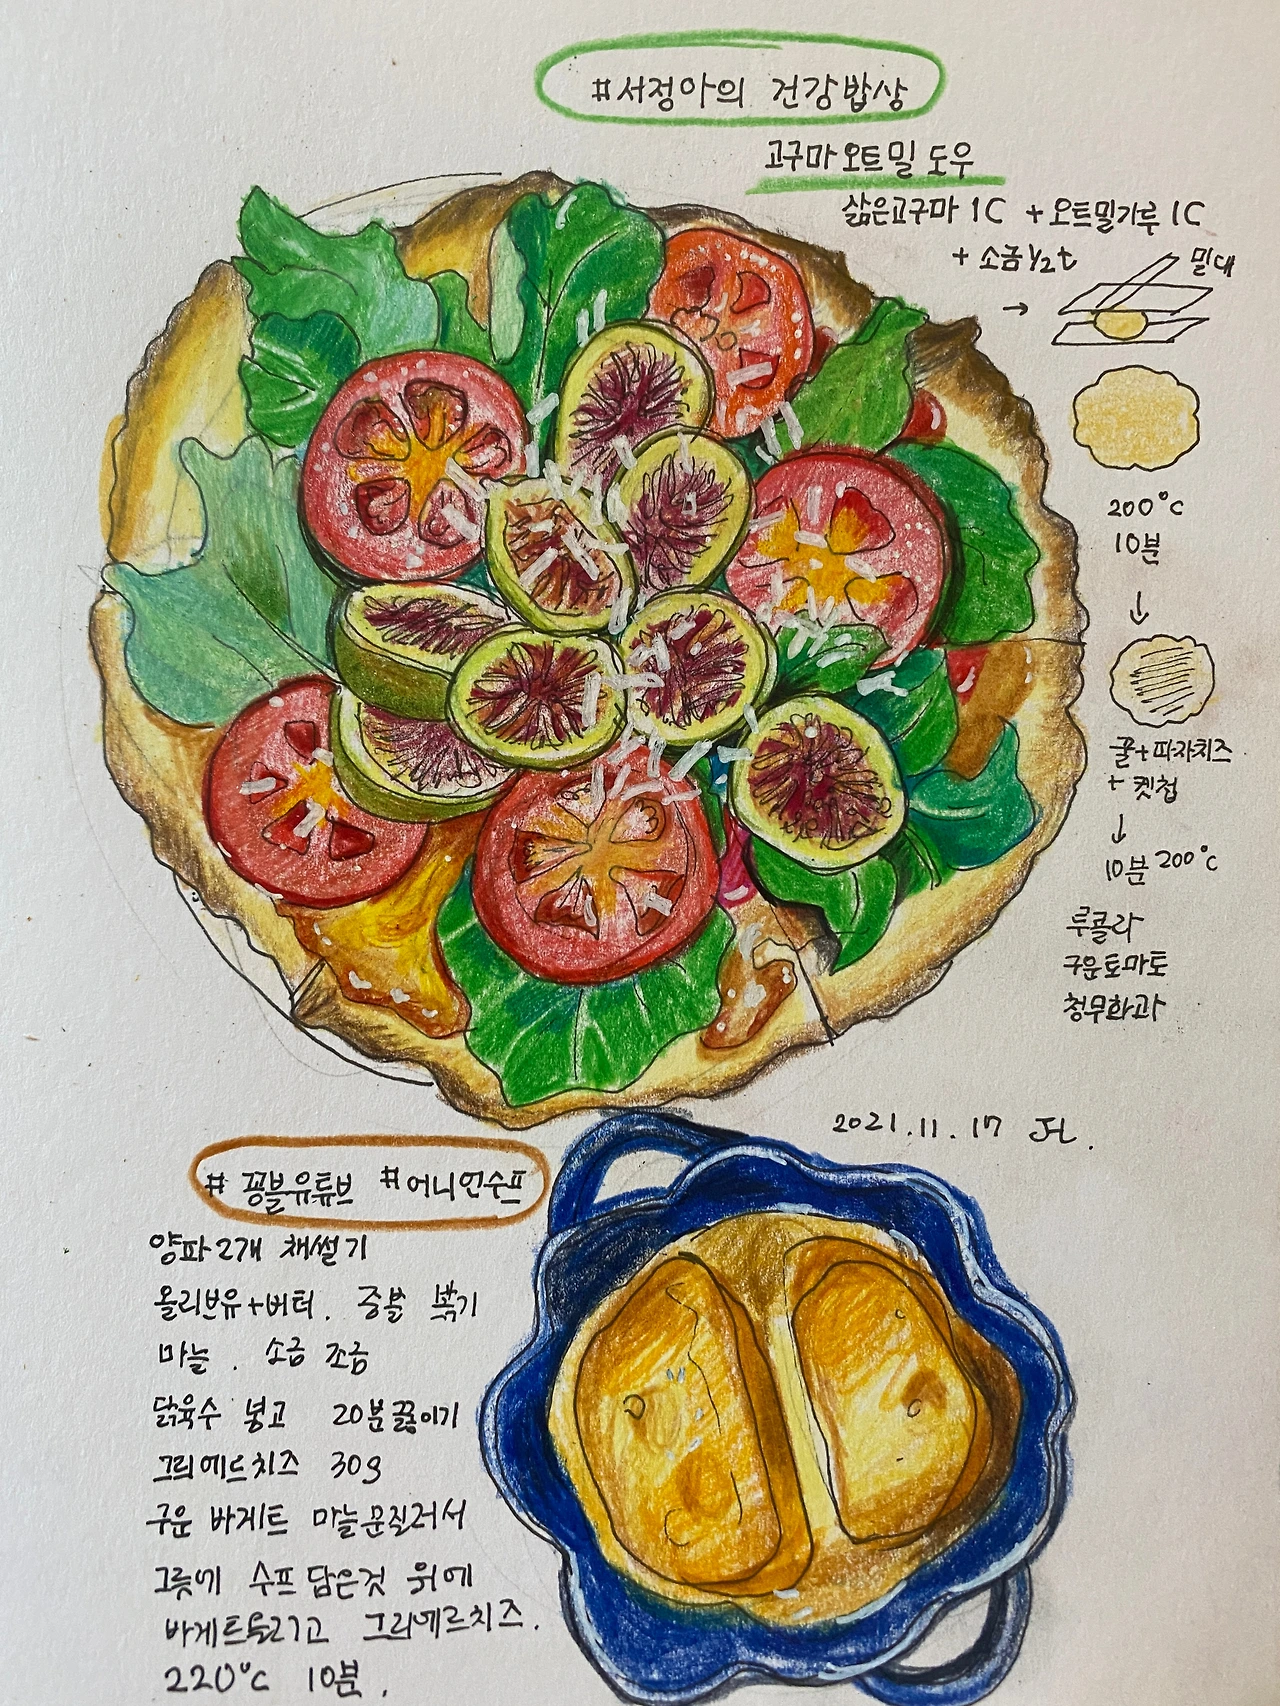 #서정아의 건강밥상
고구마오트밀 도우
삶은고구마 1C + 오트밀가루 1C
+ 소금 1/2t
→ 밀대
200°C
10분
↓
꿀+피자치즈
+ 켓첩
↓
10분 200°C
루콜라
구운토마토
청무화과
2021.11.17 JHL.
# 꽁블유튜브 #어니언수프
양파2개 채썰기
올리브유+버터. 중불 볶기
마늘. 소금 조금
닭육수 넣고 20분끓이기
그뤼에르치즈 30g
구운 바게트 마늘문질러서
그릇에 수프 담은것 위에
바게트올리고 그뤼에르치즈.
220°C 10분.